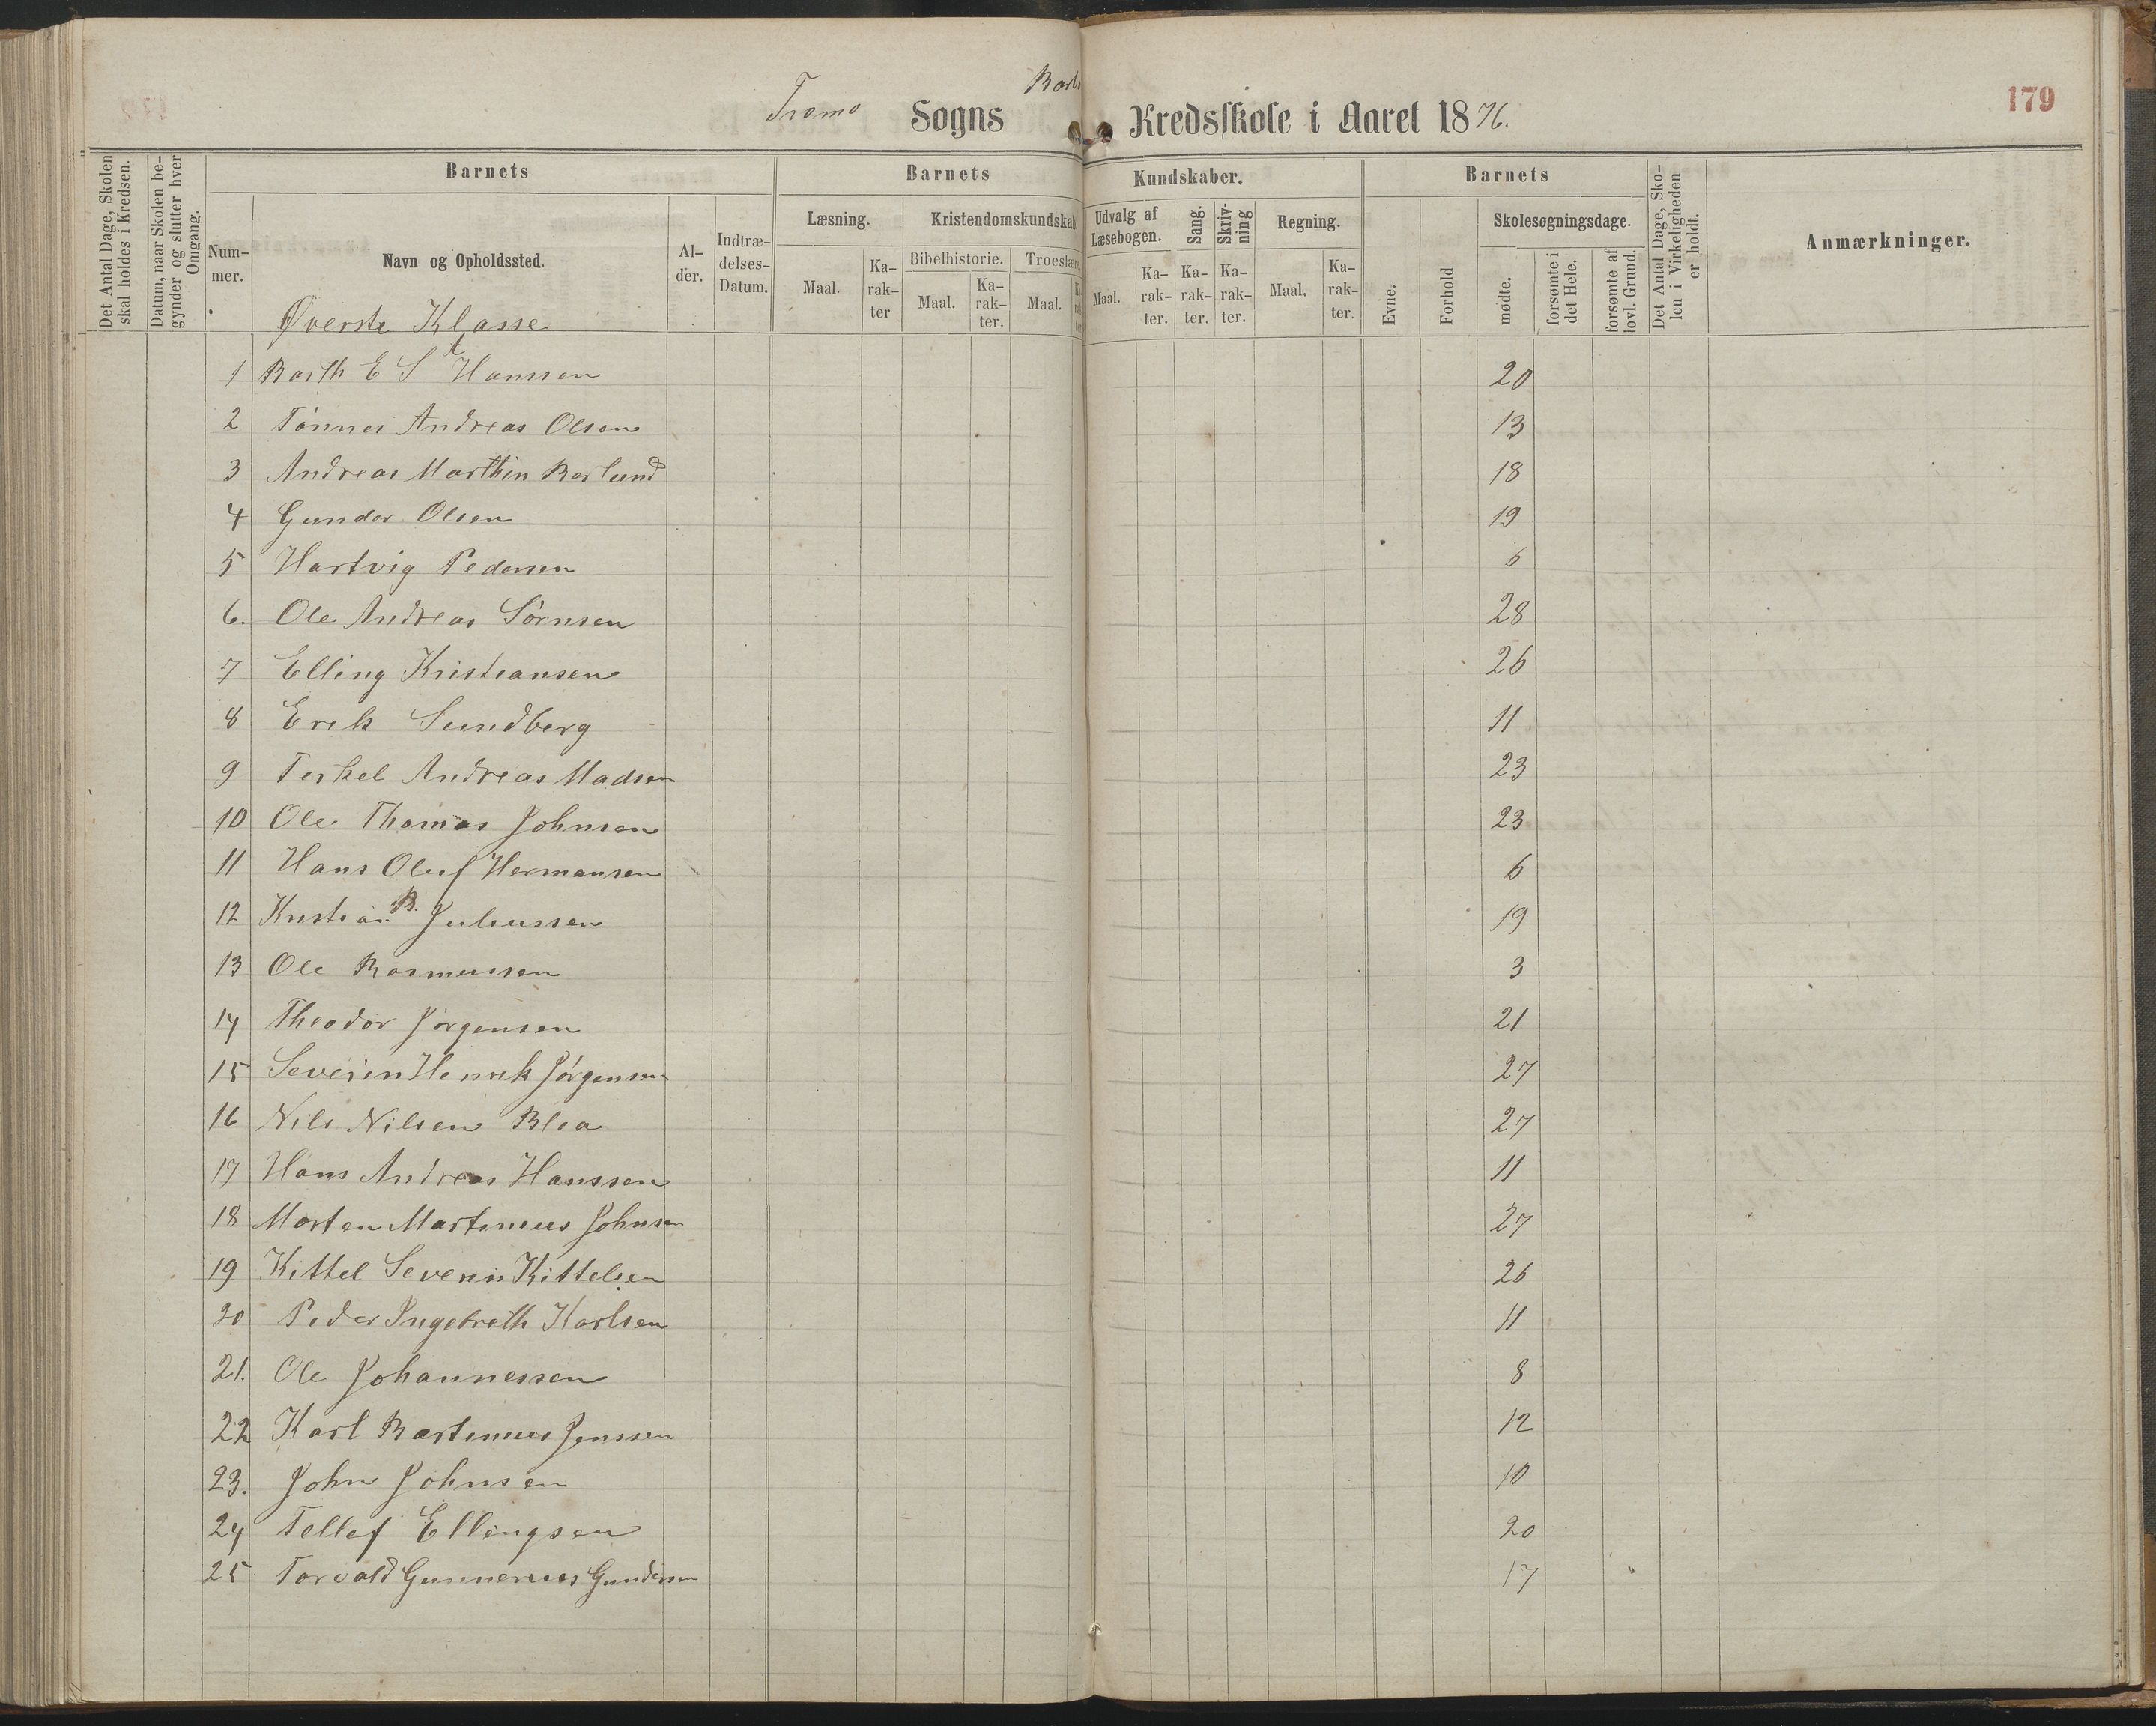 179
Tromø Sogns Barb Kredsskole i Aaret 1876.
Det Antal Dage, Skolen skal holdes i Kredsen.
Datum, naar Skolen begynder og slutter hver Omgang.
Barnets
Nummer.
Navn og Opholdssted.
Alder.
Indtrædelses-Datum.
Barnets Kundskaber.
Læsning.
Maal.
Karakter
Kristendomskundskab
Bibelhistorie.
Maal.
Karakter.
Troeslære.
Maal.
Udvalg af Læsebogen.
Maal.
Karakter.
Sang.
Karakter.
Skrivning
Karakter.
Regning.
Maal.
Karakter.
Barnets
Evne.
Forhold
Skolesøgningsdage.
mødte.
forsømte i det Hele.
forsømte af lovl. Grund.
Det Antal Dage, Skolen i Virkeligheden er holdt.
Anmærkninger.
Øverste Klasse
1 Barth E S. A Hanssen 20
2 Tönnes Andreas Olsen 13
3 Andreas Marthin Berlund 18
4 Gunder Olsen 19
5 Hartvig Pedersen 6
6. Ole Andreas Sörnsen 28
7 Elling Kristiansen 26
8 Erik Sundberg 11
9 Terkel Andreas Madsen 23
10 Ole Thomas Johnsen 23
11 Hans Oluf Hermansen 6
12 Kristian B. Juliussen 19
13 Ole Rasmussen 3
14 Theodor Jörgensen 21
15 Severin Henrik Jörgensen 27
16 Nils Nilsen Blea 27
17 Hans Andreas Hanssen 11
18 Morten Martinius Johnsen 27
19 Kittel Severin Kittelsen 26
20 Peder Ingebreth Karlsen 11
21. Ole Johannessen 8
22 Karl Bertinius Jenssen 12
23. John Johnsen 10
24 Tellef Ellingsen 20
25 Torvald Gunnerius Gundersen 17